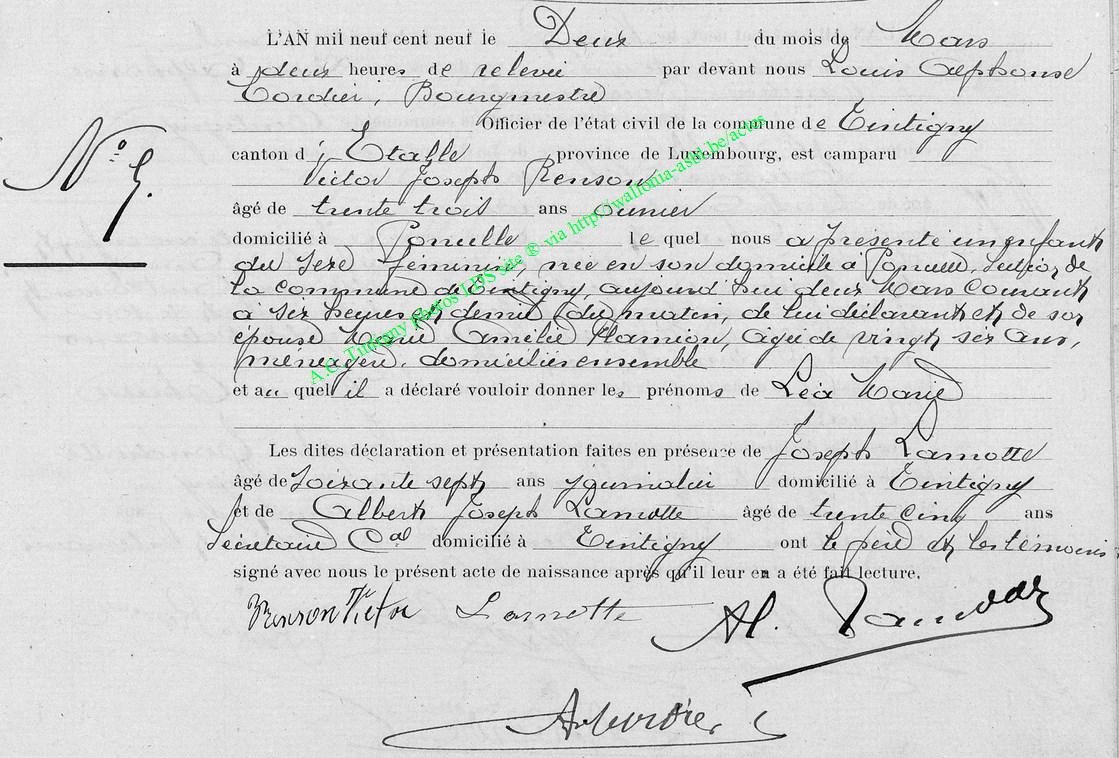 L'AN mil neuf cent neuf le Deux du mois de Mars
à deux heures de relevée par devant nous Louis Alphonse
Cordier, Bourgmestre
Officier de l'état civil de la commune de Tintigny
canton d'Etalle province de Luxembourg, est camparu
Victor Joseph Renson
âgé de trente trois ans ouvrier
domicilié à Poncelle lequel nous a présenté un enfant
du sexe féminin, née en son domicile à Poncelle, section de
la commune de Tintigny, aujourd'hui deux Mars courant
à six heures et demie du matin, de lui déclarant et de son
épouse Marie Amélie Flamion, agée de vingt six ans,
ménagère, domiciliés ensemble
et auquel il a déclaré vouloir donner les prénoms de Léa Marie
Les dites déclaration et présentation faites en présence de Joseph Lamotte
âgé de soixante sept ans journalier domicilié à Tintigny
et de Albert Joseph Lamotte âgé de trente cinq ans
Secrétaire Cal domicilié à Tintigny ont le père et les témoins
signé avec nous le présent acte de naissance après qu'il leur en a été fait lecture.
Renson Victor Lamotte Al.
N° 5.
A.C. Tintigny Photos LDS site ® via http://wallonia-asbl.be/actes